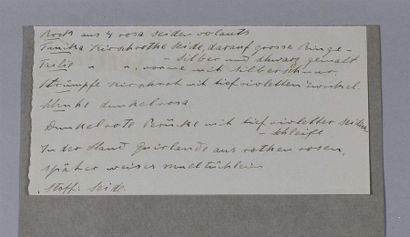 Rock aus 4 rosa seiden volants
Tunika Kirschrothe Seide, darauf grosse Ringe
- Silber und schwarz gemalt
Taille " " vorne mit Silberschnur
Strümpfe Kirschroth mit tiefvioletten Zwickel
Schuhe dunkelrosa
Dunkelrote Perücke mit tief violetter seiden
schleife
In der Hand Guirlande aus rothen rosen,
später weises mulltüchlein
Stoff: Seide.